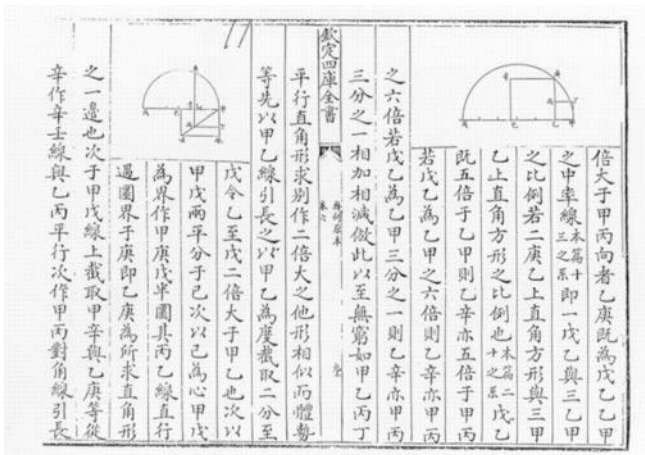 倍大于甲丙向者乙庚既為戊乙乙甲
之中率線本篇十三之系即一戊乙與三乙甲
之比例若二庚乙上直角方形與三甲
乙上直角方形之比例也本篇二十之系戊乙
既五倍于乙甲則乙辛亦五倍于甲丙
若戊乙為乙甲之六倍則乙辛亦甲丙
之六倍若戊乙為乙甲三分之一則乙辛亦甲丙
三分之一相加相減倣此以至無窮如甲乙丙丁
欽定四庫全書
卷六
平行直角形求別作二倍大之他形相似而體勢
等先以甲乙線引長之以甲乙為度截取二分至
戊令乙至戊二倍大于甲乙也次以
甲戊兩平分于己次以己為心甲戊
為界作甲庚戊半圜其丙乙線直行
遇圜界于庚即乙庚為所求直角形
之一邉也次于甲戊線上截取甲辛與乙庚等從
辛作辛壬線與乙丙平行次作甲丙對角線引長